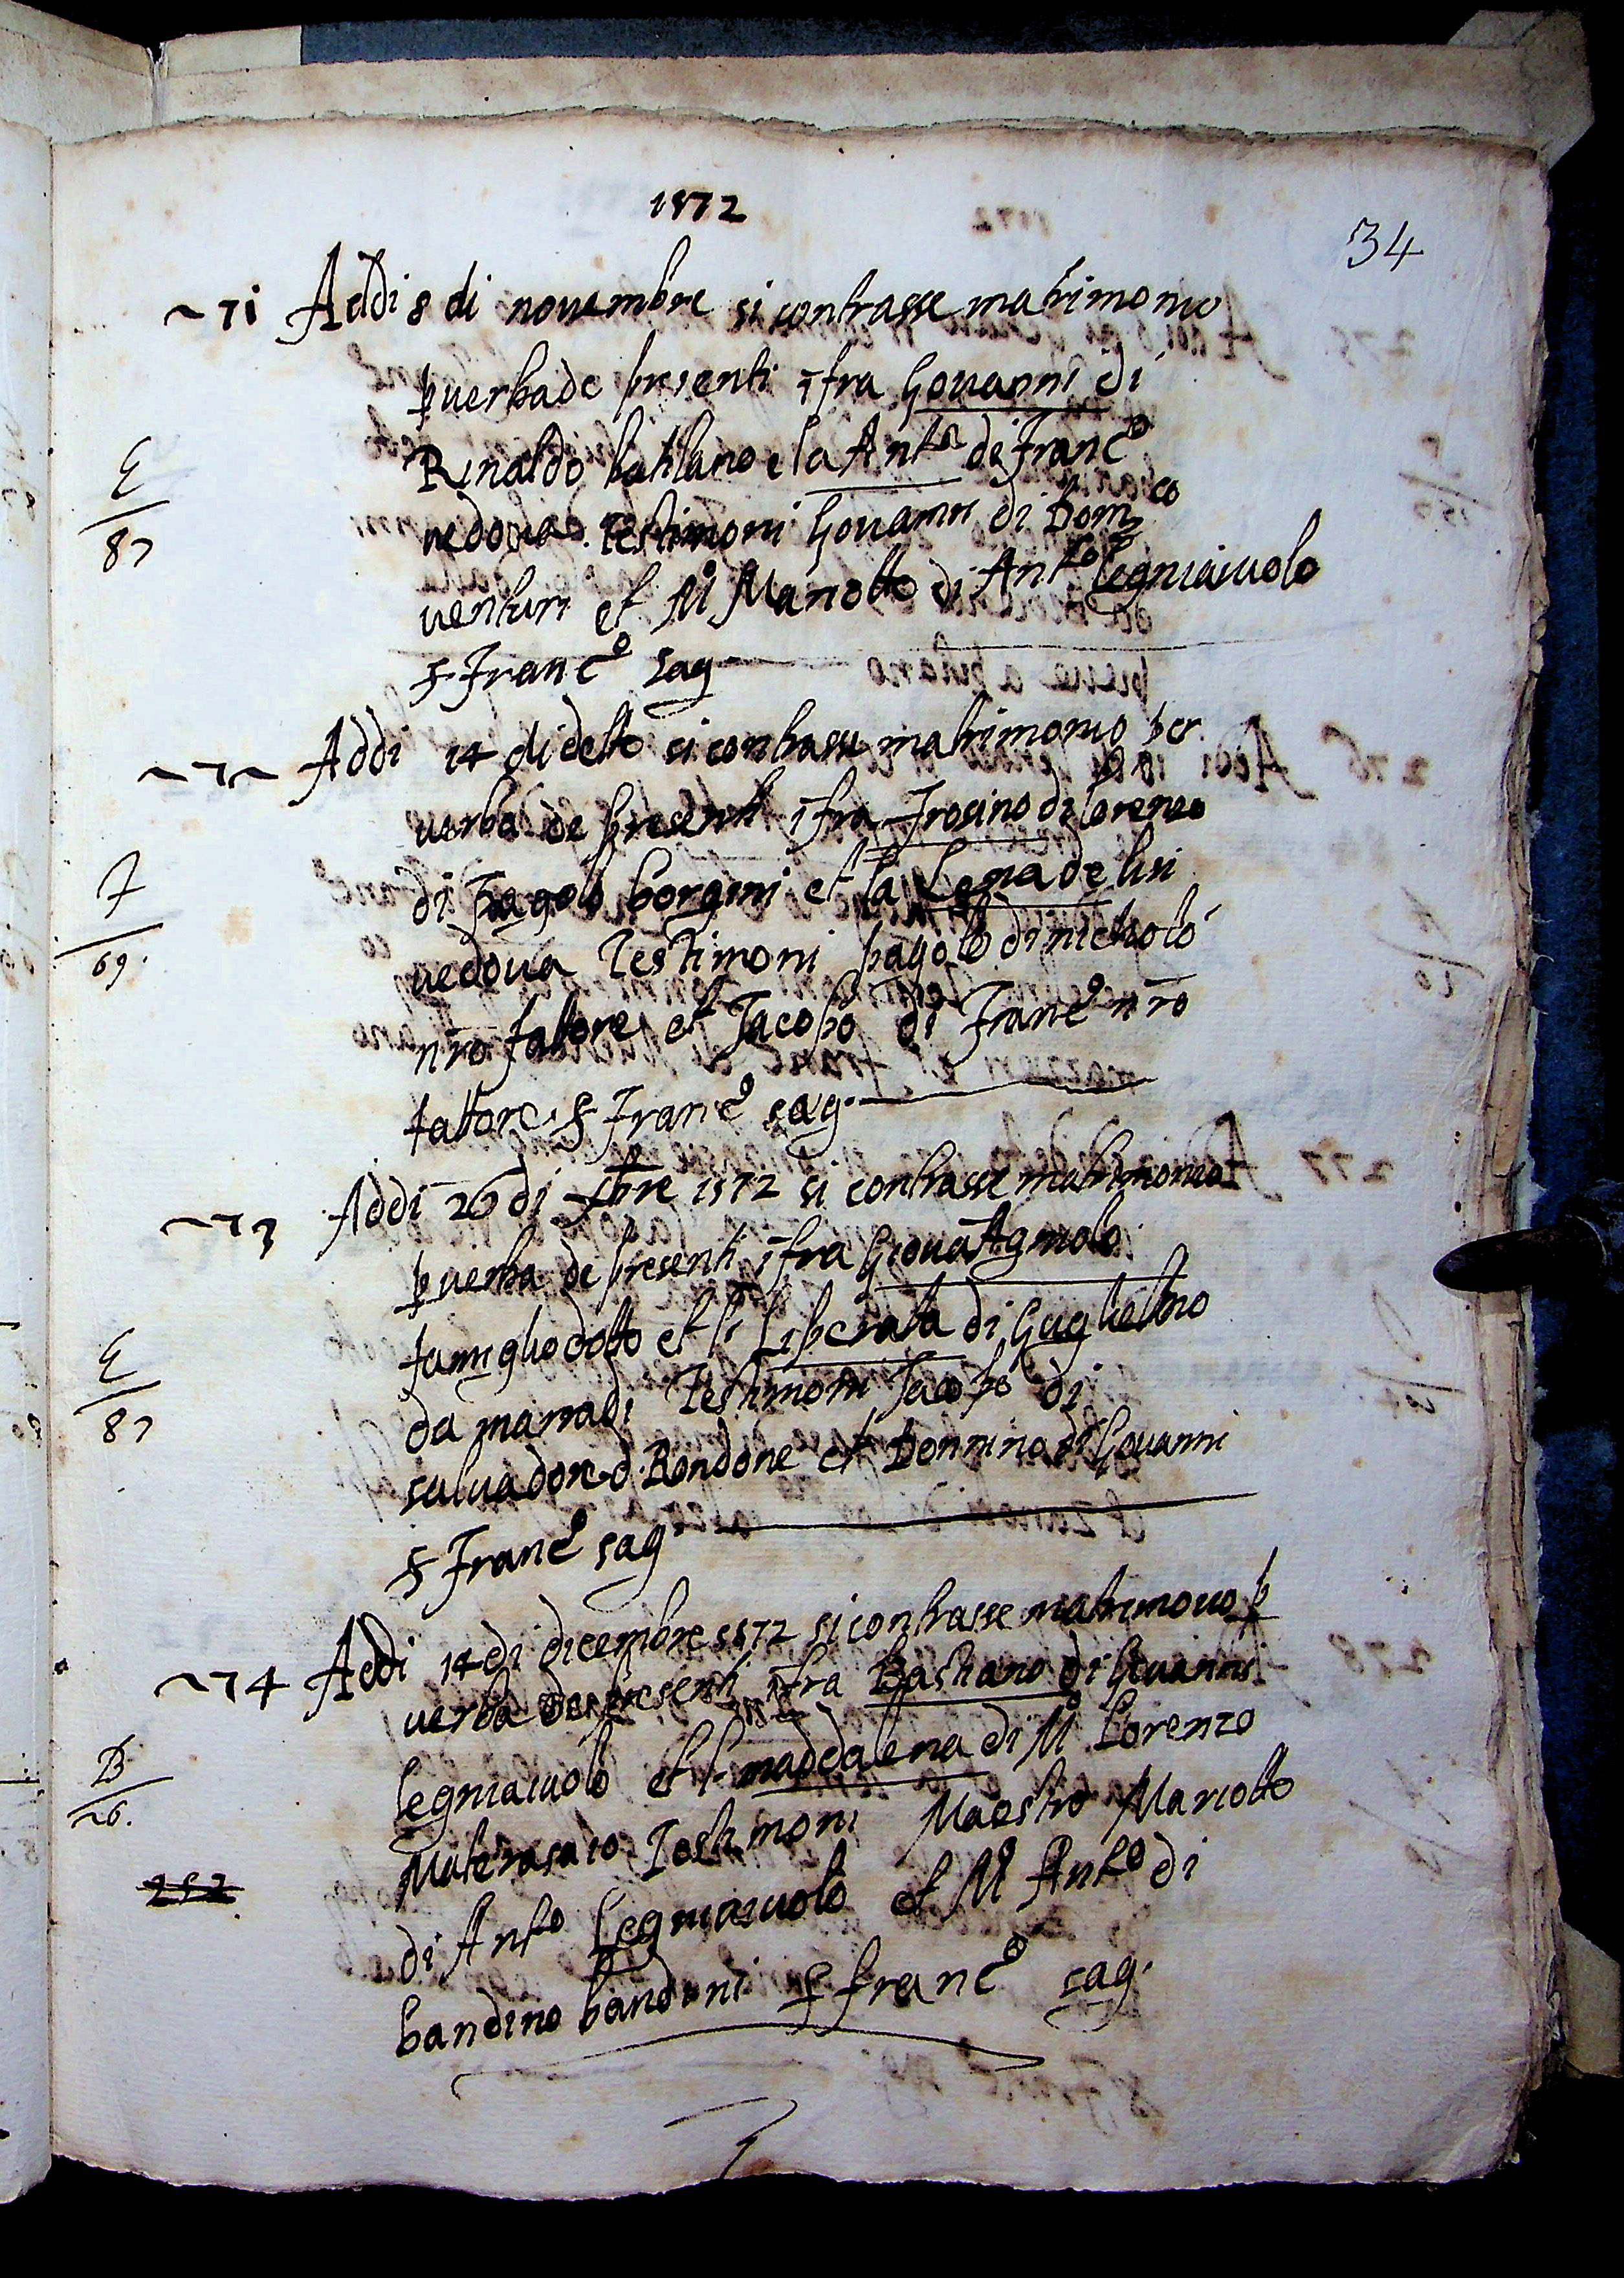 1572
34
271 Addi 8 di novembre si contrasse matrimonio
p verba de presenti ifra Govanni di
Rinaldo battilano e la Antª di Francº
vedova. Testimoni Govanni di Domco
venturi et Mº Mariotto di Antº legniaiuolo
E
87
S Francº sag
272 Addi 14 di detto si contrasse matrimonio per
verba de presenti ifra Frosino di lorenzo
di pagolo borgini et la Lena de lisi
F
69.
vedova Testimoni pagolo di nicholo
nrō fattore et Jacopo di Francº nrō
fattore. S Francº sag.
273 Addi 26 di 9bre 1572 si contrasse matrimonio
p verba de presenti ifra Giova Agnolo
famiglio dotto et l Liperata di Guglielmo
E
87
da marradi Testimoni Jacopo di
salvadore d. Bondone et Donnino di Govanni
S Francº sag.
274 Addi 14 di dicembre 1572 si contrasse matrimonio p
verba de presenti ifra Bastiano di Govanni
legniaiuolo et l maddalena di Mº Lorenzo
B
26.
Materasaio Testimoni Maestro Mariotto
252
di Antº legniaiuolo et Mº Antº di
bandino bandini S francº sag.